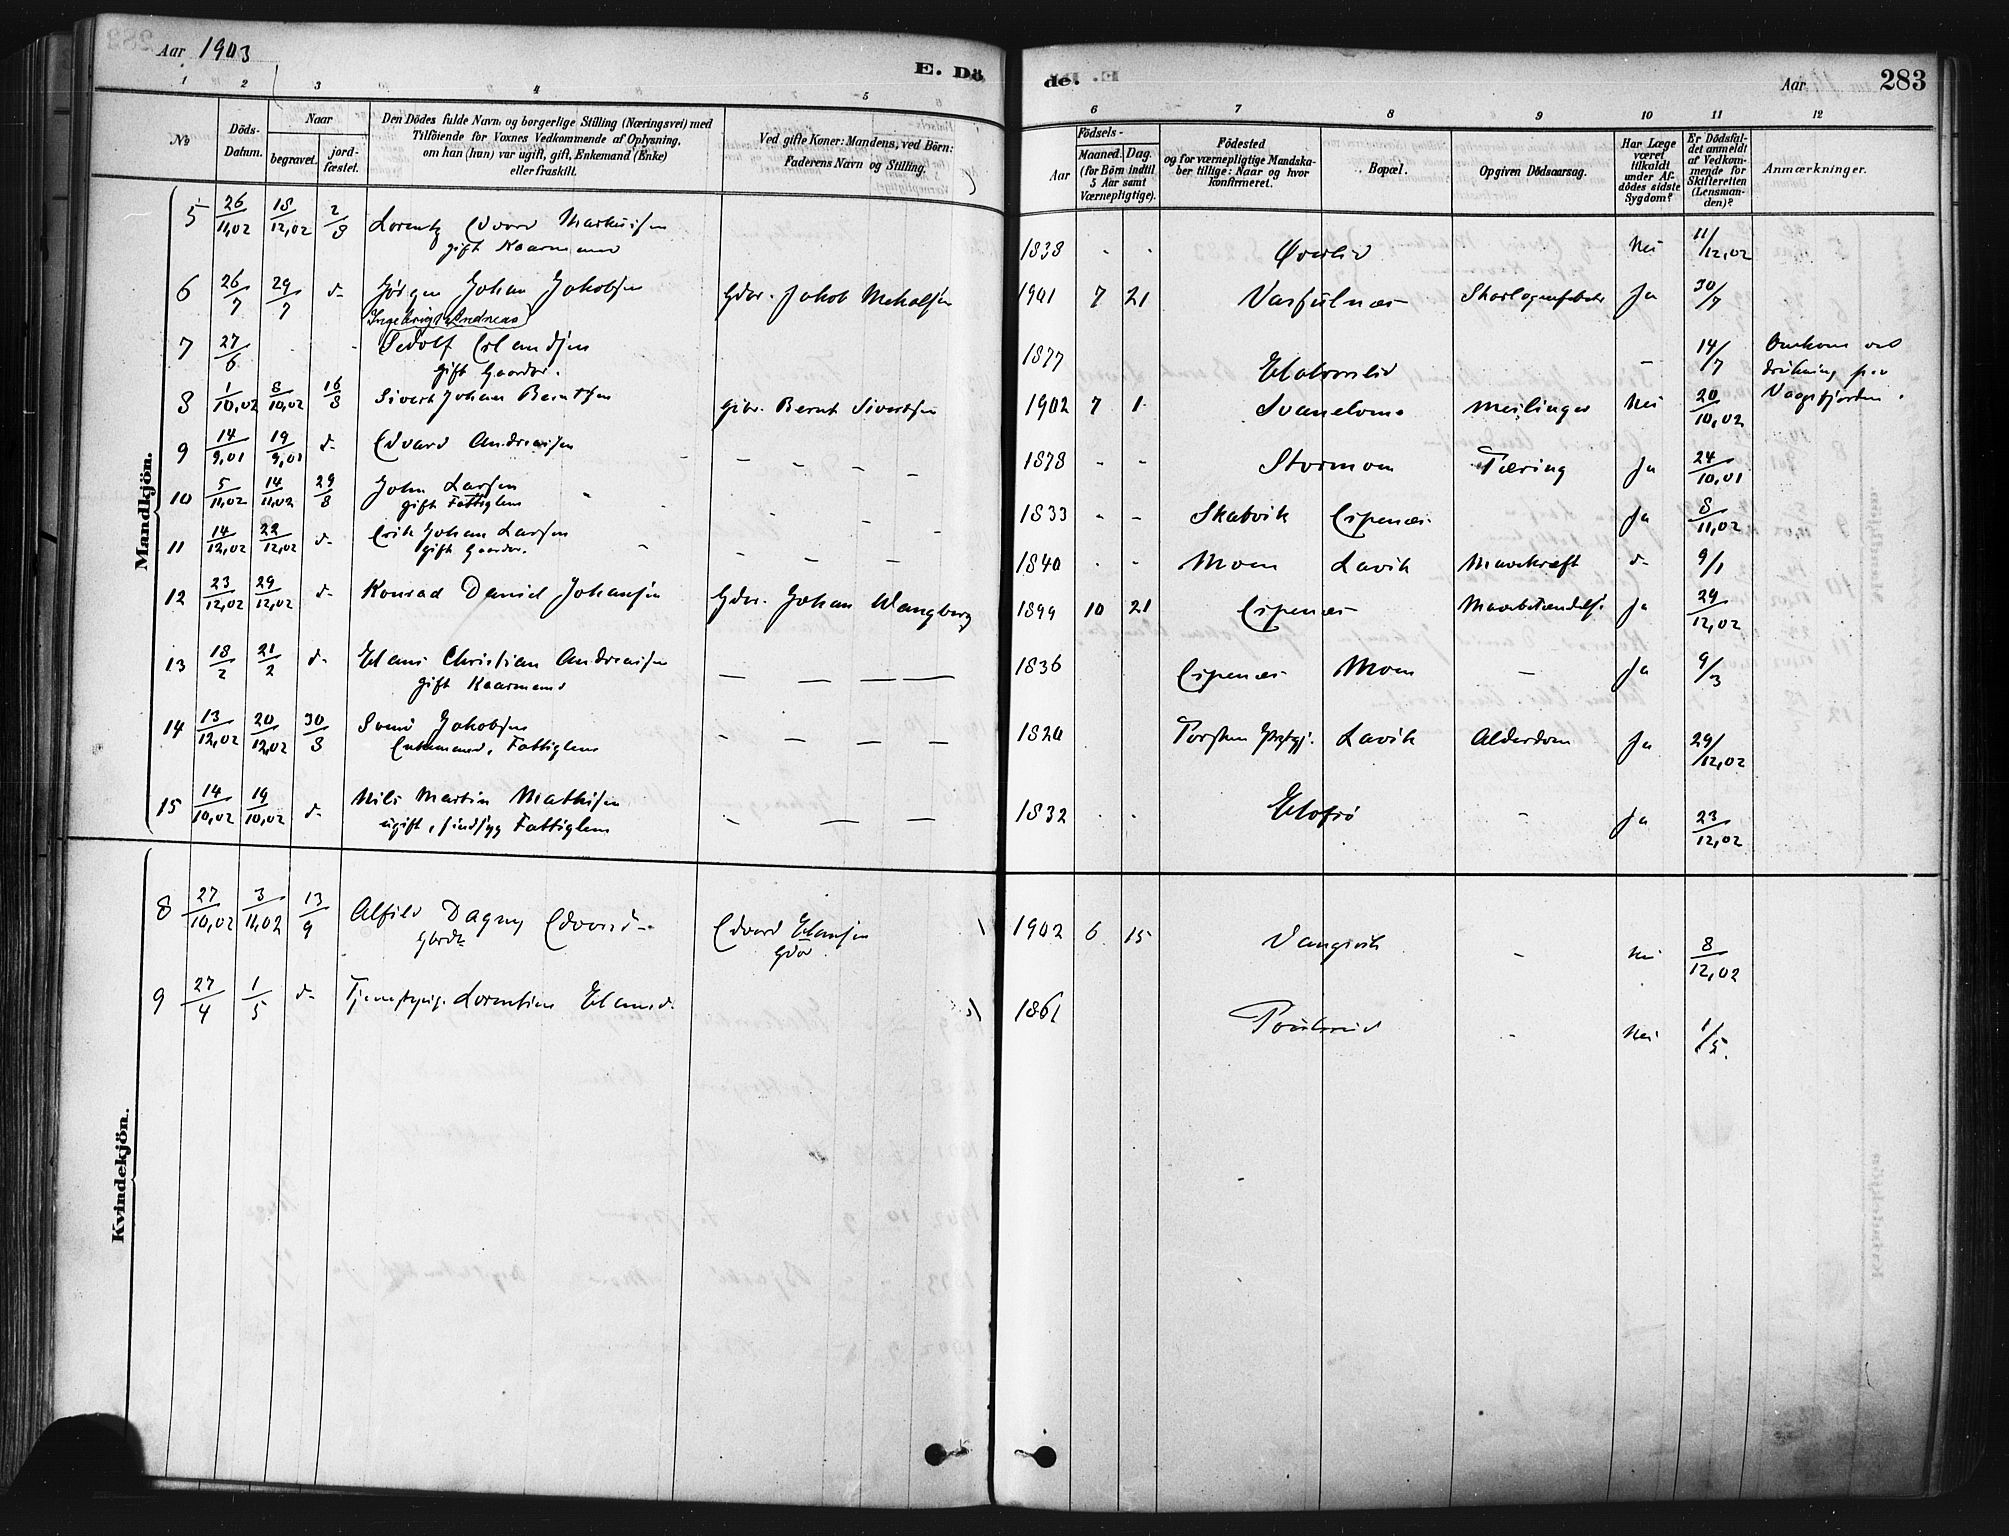 Aar 1903
E. Dö
1 2 3 4 5
No
Döds-Datum.
Naar
begravet.
jordfæstet.
Den Dödes fulde Navn og borgerlige Stilling (Næringsvei) med
Tilföiende for Voxnes Vedkommende af Oplysning,
om han (hun) var ugift, gift, Enkemand (Enke)
eller fraskilt.
Ved gifte Koner: Mandens, ved Börn:
Faderens Navn og Stilling.
Mandkjön.
5 26/11,02 18/12,02 2/8
gift Kaarmand
6 26/7 29/7 d- Jörgen Johan Jakobsen Gbr. Jakob
7 27/6 - -
gift Gaardbr.
8 1/10,02 8/10,02 16/8 Sivert Johan Berntsen Gbr. Bernt Sivertsen
9 14/9,01 19/9,01 d- Edvard Andreassen — — — —
10 5/11,02 14/11,02 29/8 John Larsen
gift Fattiglem
11 14/12,02 22/12,02 d- Erik Johan Larsen
gift Gaardbr.
12 23/12,02 29/12,02 d- Konrad Daniel Johansen Gbr. Johan Wangberg
13 18/2 21/2 d- Hans Christian Andreassen — — — —
gift Kaarmand
14 13/12,02 20/12,02 30/8 Jakobsen
Enkemand, Fattiglem
15 14/10,02 19/10,02 d- Nils Martin Mathisen
ugift, sindsyg Fattiglem
Kvindekjön.
8 27/10,02 3/11,02 13/9 Alfild Dagny Edvards. Edvard Hansen
9 27/4 1/5 d- Tjenestepig. Lorentine Hansd.
de.
Aar
283
6 7 8 9 10 11 12
Födsels-
Aar
Maaned. Dag.
(for Börn indtil
5 Aar samt
Værnepligtige).
Födested
og for værnepligtige Mandskaber
tillige: Naar og hvor
konfirmeret.
Bopæl.
Opgiven Dödsaarsag.
Har Læge
været
tilkaldt
under Afdödes
sidste
Sygdom?
Er Dödsfaldet
anmeldt
af Vedkommende
for
Skifteretten
(Lensmanden)?
Anmærkninger.
1838 - - Nei 11/12,02
1901 7 21 Ja 30/7
1877 - 14/7 Omkom ved drukning paa Vaagsfjorden.
1902 7 1 Nei 20/10,02
1878 - - Stormoen Tæring Ja 24/10,01
1833 - - Skatvik Espenes Ja 8/11,02
1840 - - Moen Lavik Mavekræft d- 9/1
1899 10 21 Espenes Ja 29/12,02
1836 Espenes Moen — Ja 9/3
1820 Lavik Alderdom Ja 29/12,02
1832 - - - Ja 23/12,02
1902 6 15 Vangsvik - Nei 8/12,02
1861 - Nei 1/5.